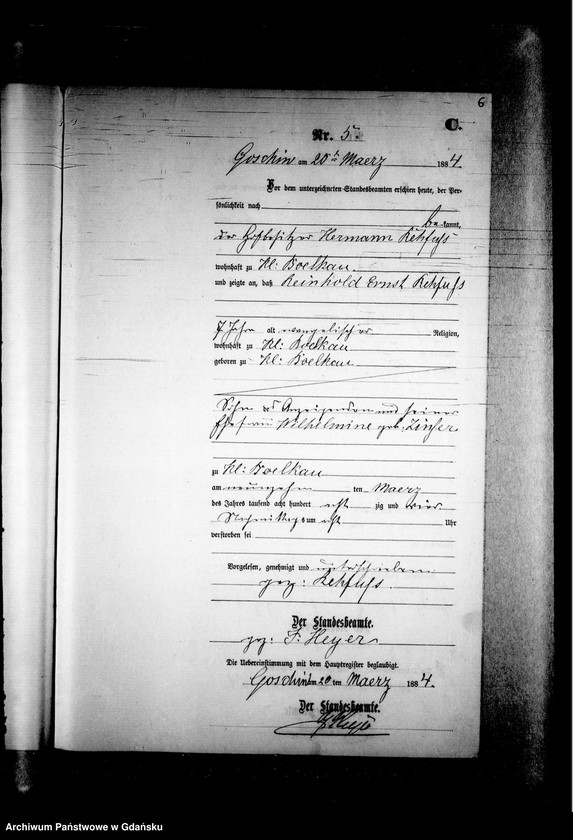 6
C.
Nr. 5.
Goschin am 20ten Maerz 1884.
Vor dem unterzeichneten Standesbeamten erschien heute, der Per-
sönlichkeit nach
be-kannt,
der Hofbesitzer Hermann Rehfuss
wohnhaft zu Kl: Boelkau.
und zeigte an, daß Reinhold Ernst Rehfuss
7 Jahr alt evangelischer Religion,
wohnhaft zu Kl: Boelkau
geboren zu Kl: Boelkau
Sohn des Anzeigenden und seiner
Ehefrau Wilhelmine geb:
zu Kl: Boelkau
am neunzehn ten Maerz
des Jahres tausend acht hundert acht zig und vier
Nachmittags um acht Uhr
verstorben sei
Vorgelesen, genehmigt und unterschrieben
gez: Rehfuss.
Der Standesbeamte.
gez: F. Heyer
Die Uebereinstimmung mit dem Hauptregister beglaubigt.
Goschin am 20 ten Maerz 1884.
Der Standesbeamte.
Archiwum Państwowe w Gdańsku